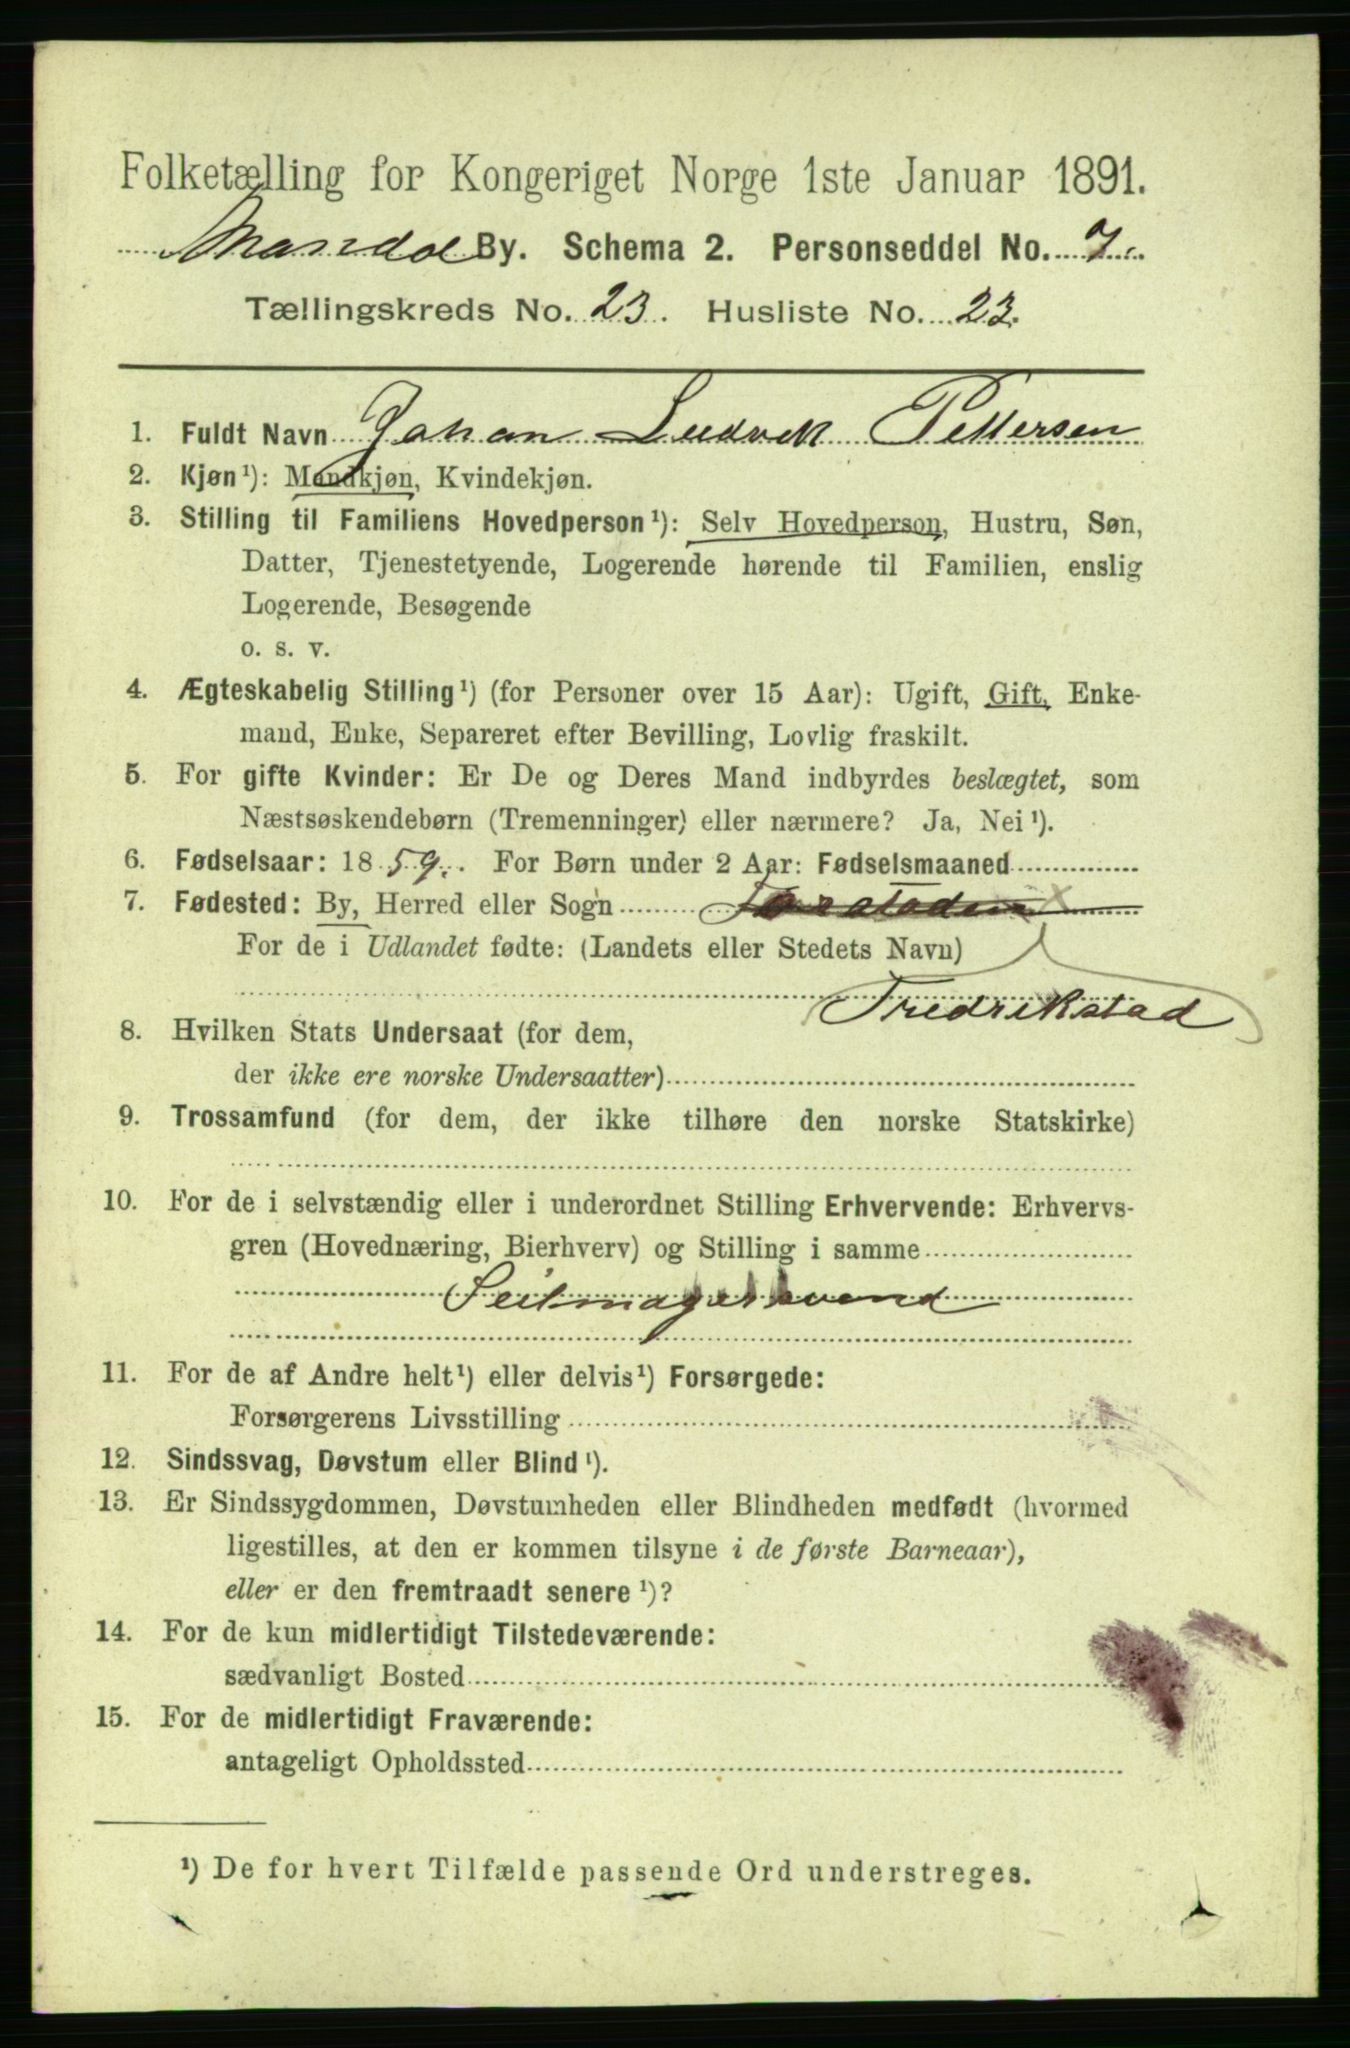 Folketælling for Kongeriget Norge 1ste Januar 1891.
Mandal By. Schema 2. Personseddel No. 7.
Tællingskreds No. 23. Husliste No. 23.
1. Fuldt Navn Johan Ludvik Pettersen
2. Kjøn¹): Mandkjøn, Kvindekjøn.
3. Stilling til Familiens Hovedperson¹): Selv Hovedperson, Hustru, Søn,
Datter, Tjenestetyende, Logerende hørende til Familien, enslig
Logerende, Besøgende
o. s. v.
4. Ægteskabelig Stilling¹) (for Personer over 15 Aar): Ugift, Gift, Enke-
mand, Enke, Separeret efter Bevilling, Lovlig fraskilt.
5. For gifte Kvinder: Er De og Deres Mand indbyrdes beslægtet, som
Næstsøskendebørn (Tremenninger) eller nærmere? Ja, Nei¹).
6. Fødselsaar: 1859. For Børn under 2 Aar: Fødselsmaaned
7. Fødested: By, Herred eller Sogn
For de i Udlandet fødte: (Landets eller Stedets Navn)
Fredrikstad
8. Hvilken Stats Undersaat (for dem,
der ikke ere norske Undersaatter)
9. Trossamfund (for dem, der ikke tilhøre den norske Statskirke)
10. For de i selvstændig eller i underordnet Stilling Erhvervende: Erhvervs-
gren (Hovednæring, Bierhverv) og Stilling i samme
Seilmagersvend
11. For de af Andre helt¹) eller delvis¹) Forsørgede:
Forsørgerens Livsstilling
12. Sindssvag, Døvstum eller Blind¹).
13. Er Sindssygdommen, Døvstumheden eller Blindheden medfødt (hvormed
ligestilles, at den er kommen tilsyne i de første Barneaar),
eller er den fremtraadt senere¹)?
14. For de kun midlertidigt Tilstedeværende:
sædvanligt Bosted
15. For de midlertidigt Fraværende:
antageligt Opholdssted
¹) De for hvert Tilfælde passende Ord understreges.